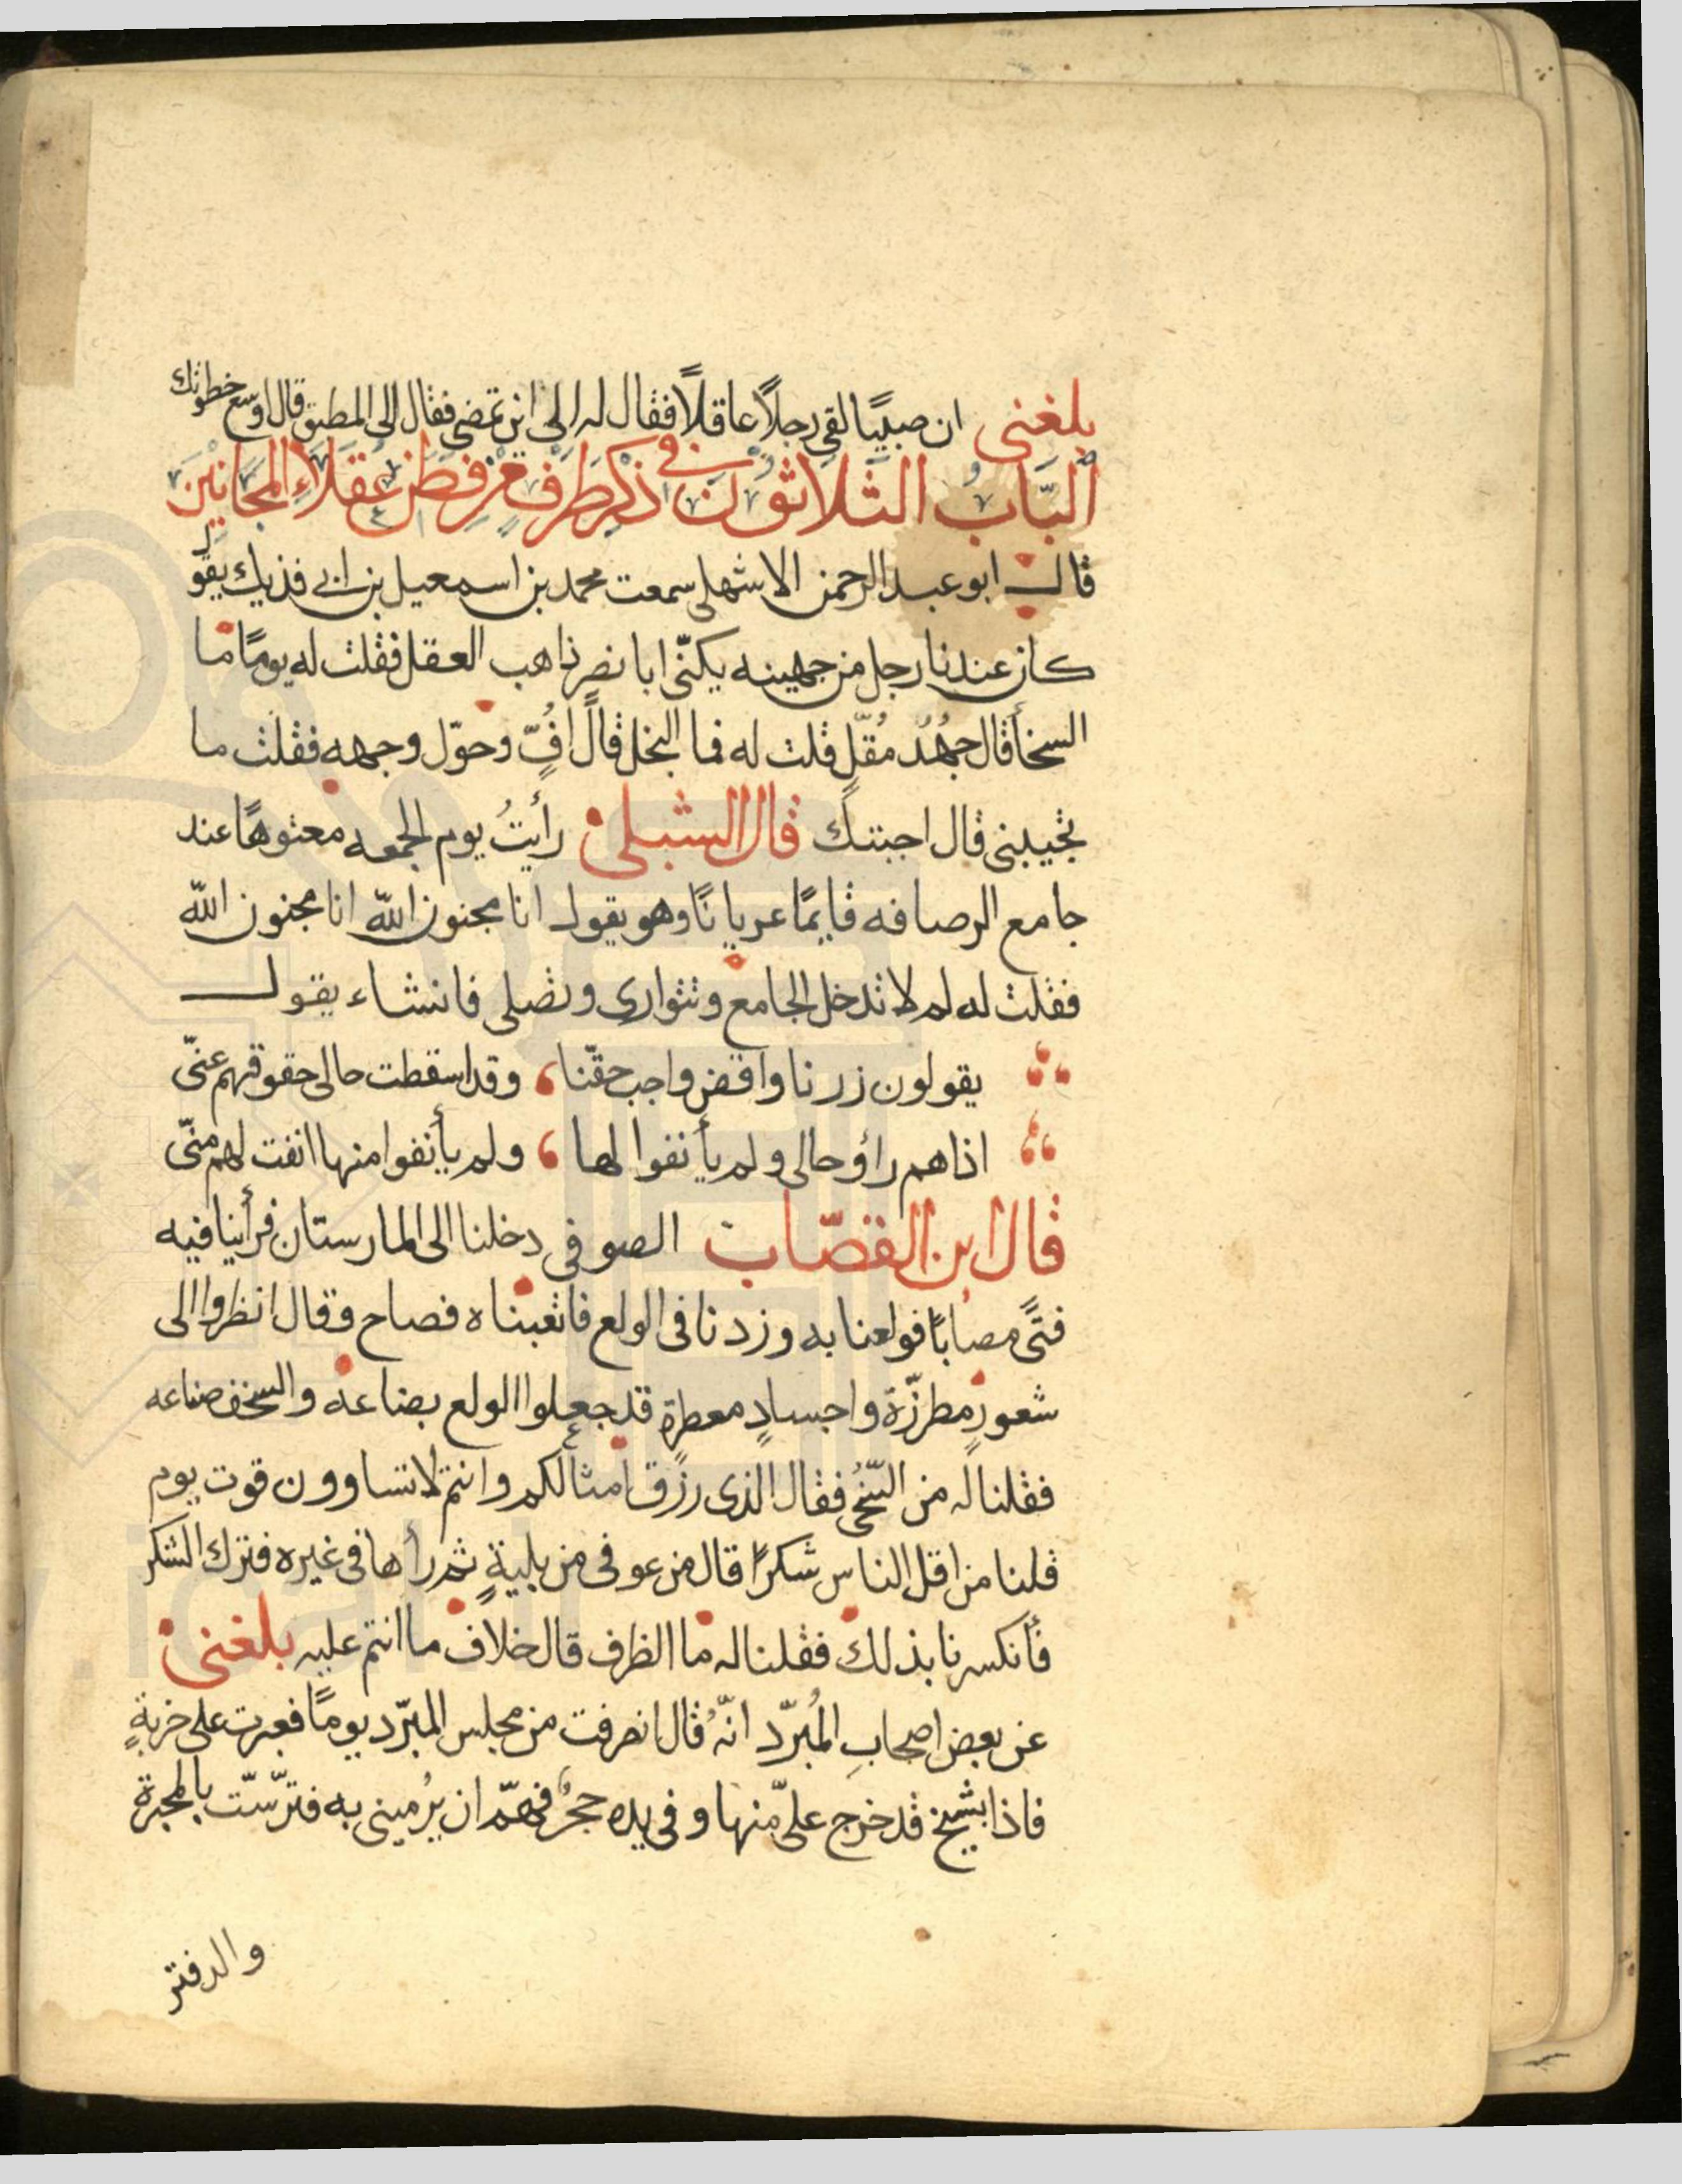 بلغنى ان صبيًا لقى رجلاً عاقلاً فقال له الى اين تمضى فقال الى المطبق قال اوسع خطوتك
البَابُ الثلاثون فى ذكر طرف من فطن عقلاء المجانين
قال ابو عبد الرحمن الاشهلى سمعت محمد بن اسمعيل بن ابى فديك يقول
كان عندنا رجل من جهينه يكنّى ابا نصر ذاهب العقل فقلت له يومًا ما
السخأ قال جهدُ مُقلّ قلت له فما البخل قال افٍّ وحوّل وجهه فقلت ما
تجيبنى قال اجبتك قال الشبلى رأيتُ يوم الجمعه معتوهًا عند
جامع الرصافه قايمًا عريانًا وهو يقول انا مجنون الله انا مجنون الله
فقلت له لم لا تدخل الجامع وتتوارى وتصلى فانشاء يقول
يقولون زرنا واقض واجب حقّنا وقد اسقطت حالى حقوقهم عنّى
اذا هم رأو حالى ولم يأنفوا لها ولم يأنفوا منها انفت لهم منّى
قال ابن القصّاب الصوفى دخلنا الى المارستان فرأينا فيه
فتًى مصابًا فولعنا به وزدنا فى الولع فاتعبناه فصاح وقال انظروا الى
شعورٍ مطرزّة واجسادٍ معطرة قد جعلوا الولع بضاعه والسخف صناعه
فقلنا له من السّخىُ فقال الذى رزق امثالكم وانتم لا تساوون قوت يوم
قلنا من اقل الناس شكرًا قال من عوفى من بليةٍ ثم رأها فى غيره فترك الشكر
فأنكسرنا بذلك فقلنا له ما الظرف قال خلاف ما انتم عليه بلغنى
عن بعض اصحابِ المُبرّد انّه قال انصرفت من مجلس المبرّد يومًا فعبرت على خربةٍ
فاذا بشيخ قد خرج علىّ منها وفى يده حجرٌ فهمّ ان يُرمينى به فترّستّ بالمحبرة
والدفتر